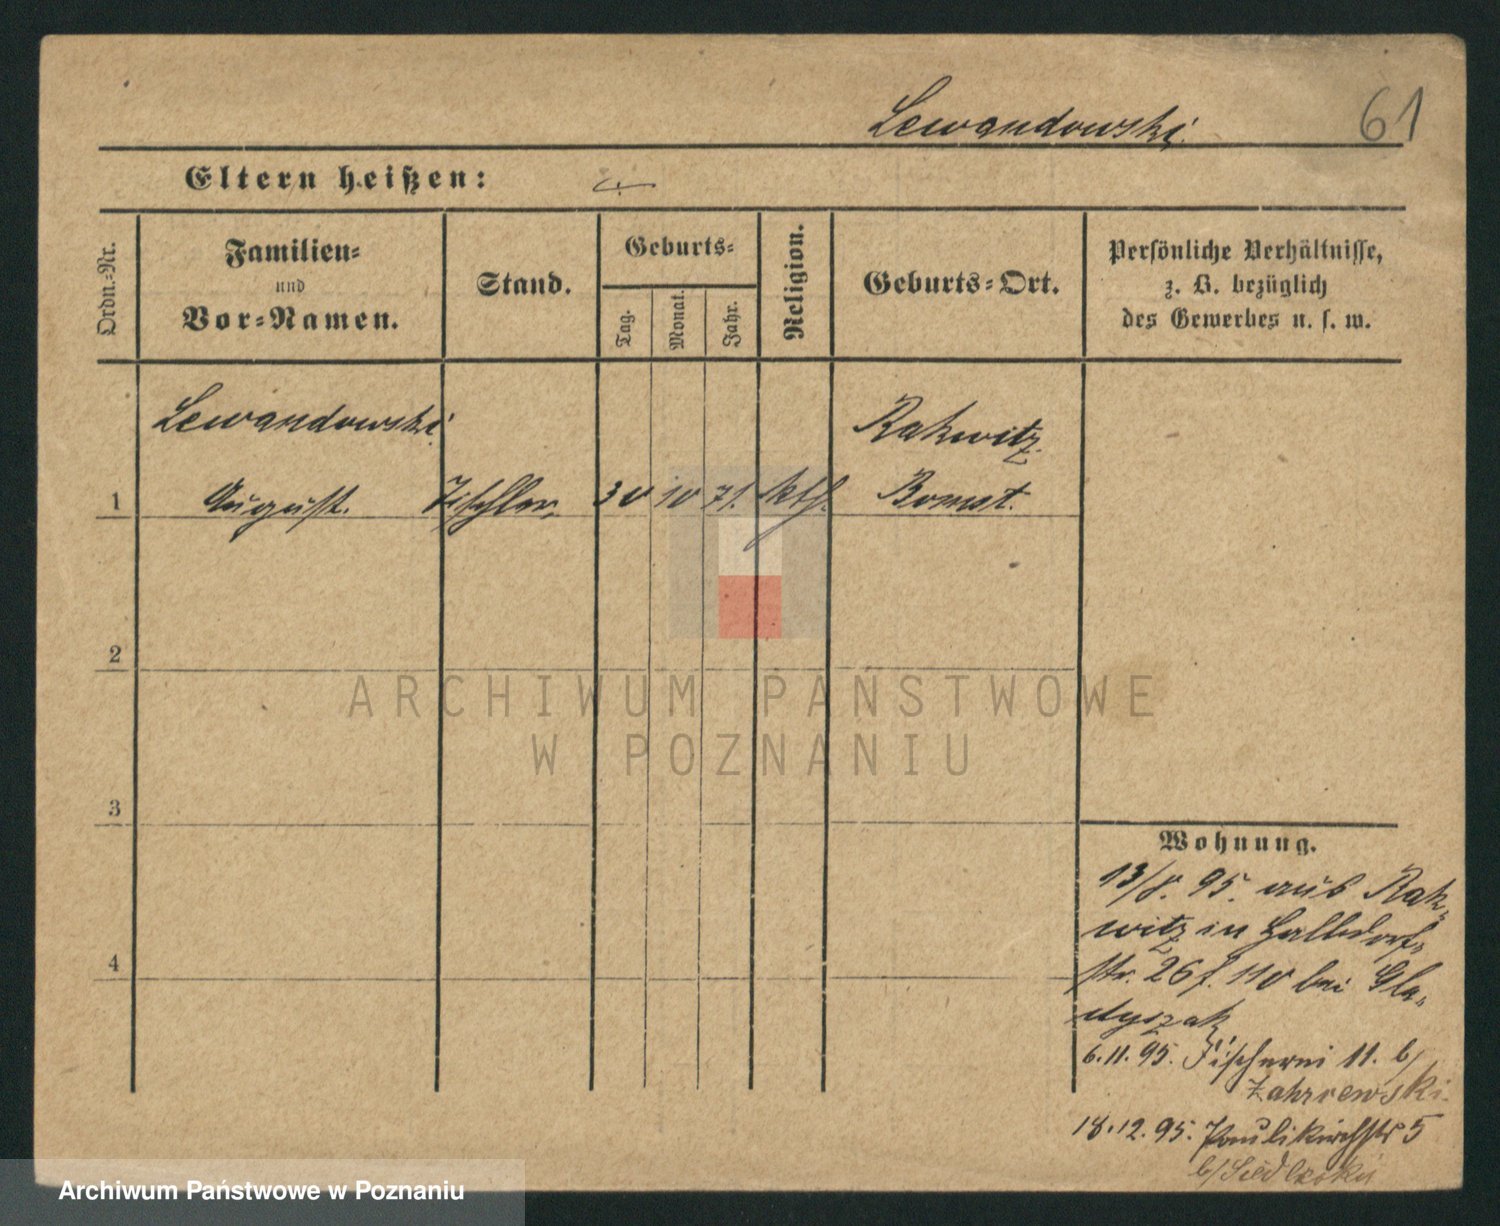 Lewandowski
61
Eltern heißen:
Ordn.-Nr.
Familien-
und
Vor-Namen.
Stand.
Geburts-
Tag.
Monat.
Jahr.
Religion.
Geburts-Ort.
Persönliche Verhältnisse,
z. B. bezüglich
des Gewerbes u. s. w.
Lewandowski
Rakwitz
1 August. Tischler 30 10 71. kth. Bomst.
2
ARCHIWUM PAŃSTWOWE
W POZNANIU
3
Wohnung.
13/8. 95. aus Rak-
witz in Halbdorf-
str. 26 f. 110 bei Gla-
dyszak
4
6.11.95. Fischerei 11. b/
18.12.95. Paulikirchstr 5
Archiwum Państwowe w Poznaniu